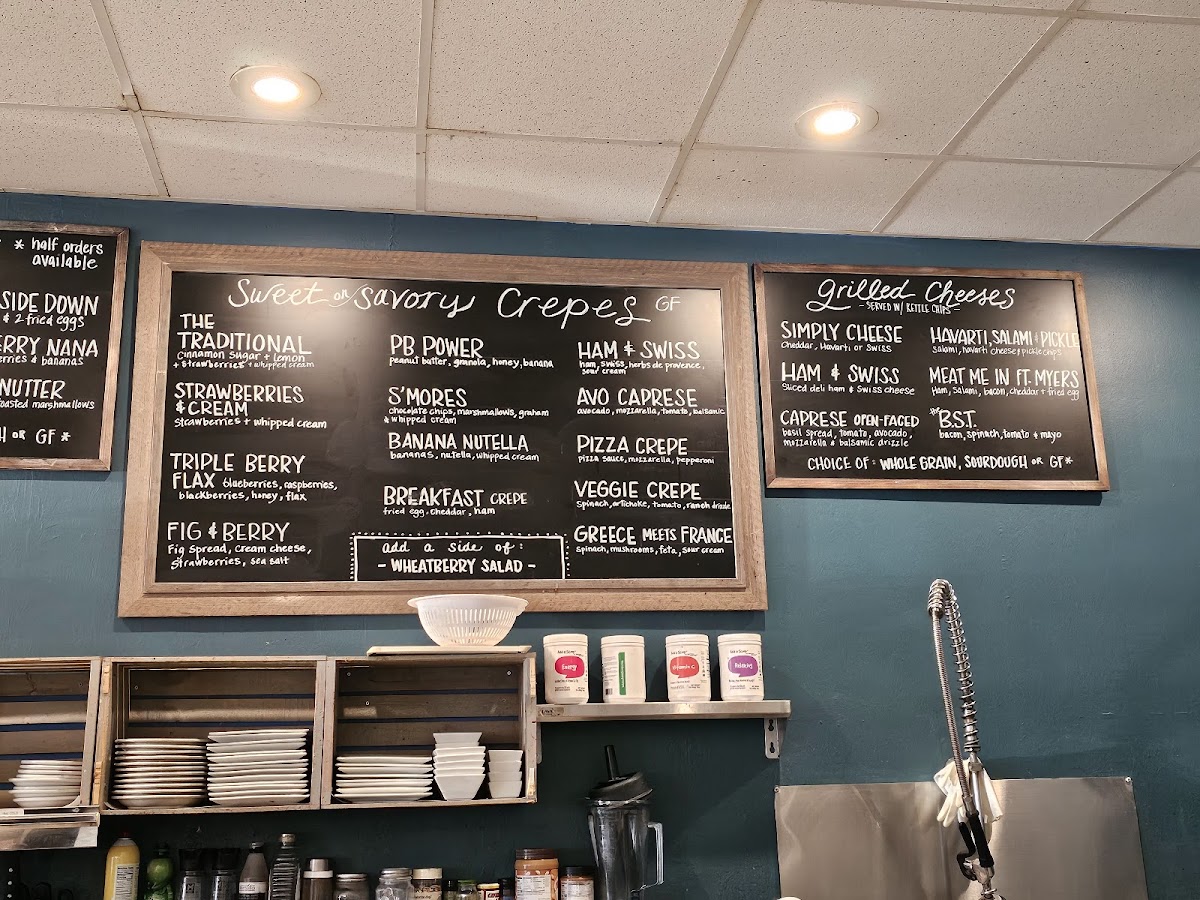 * half orders
available
SIDE DOWN
& 2 fried eggs
ERRY NANA
erries & bananas
NUTTER
toasted marshmallows
H OR GF *
Sweet or Savory Crepes GF
THE
TRADITIONAL
cinnamon sugar + lemon
+ strawberries + whipped cream
STRAWBERRIES
& CREAM
strawberries + whipped cream
TRIPLE BERRY
FLAX blueberries, raspberries,
blackberries, honey, flax
FIG & BERRY
Fig spread, cream cheese,
strawberries, sea salt
PB POWER
peanut butter, granola, honey, banana
S'MORES
chocolate chips, marshmallows, graham
& whipped cream
BANANA NUTELLA
bananas, nutella, whipped cream
BREAKFAST CREPE
fried egg, cheddar, ham
add a side of:
- WHEATBERRY SALAD -
HAM & SWISS
ham, swiss, herbs de provence,
sour cream
AVO CAPRESE
avocado, mozzarella, tomato, balsamic
PIZZA CREPE
pizza sauce, mozzarella, pepperoni
VEGGIE CREPE
spinach, artichoke, tomato, ranch drizzle
GREECE MEETS FRANCE
spinach, mushrooms, feta, sour cream
Grilled Cheeses
- SERVED W/ KETTLE CHIPS -
SIMPLY CHEESE
cheddar, Havarti or Swiss
HAM & SWISS
Sliced deli ham & Swiss cheese
CAPRESE OPEN-FACED
basil spread, tomato, avocado,
mozzarella & balsamic drizzle
HAVARTI, SALAMI & PICKLE
salami, havarti cheese & pickle chips
MEAT ME IN FT. MYERS
Ham, salami, bacon, cheddar + fried egg
B.S.T.
bacon, spinach, tomato & mayo
CHOICE OF: WHOLE GRAIN, SOURDOUGH OR GF*
Energy
Vitamin C